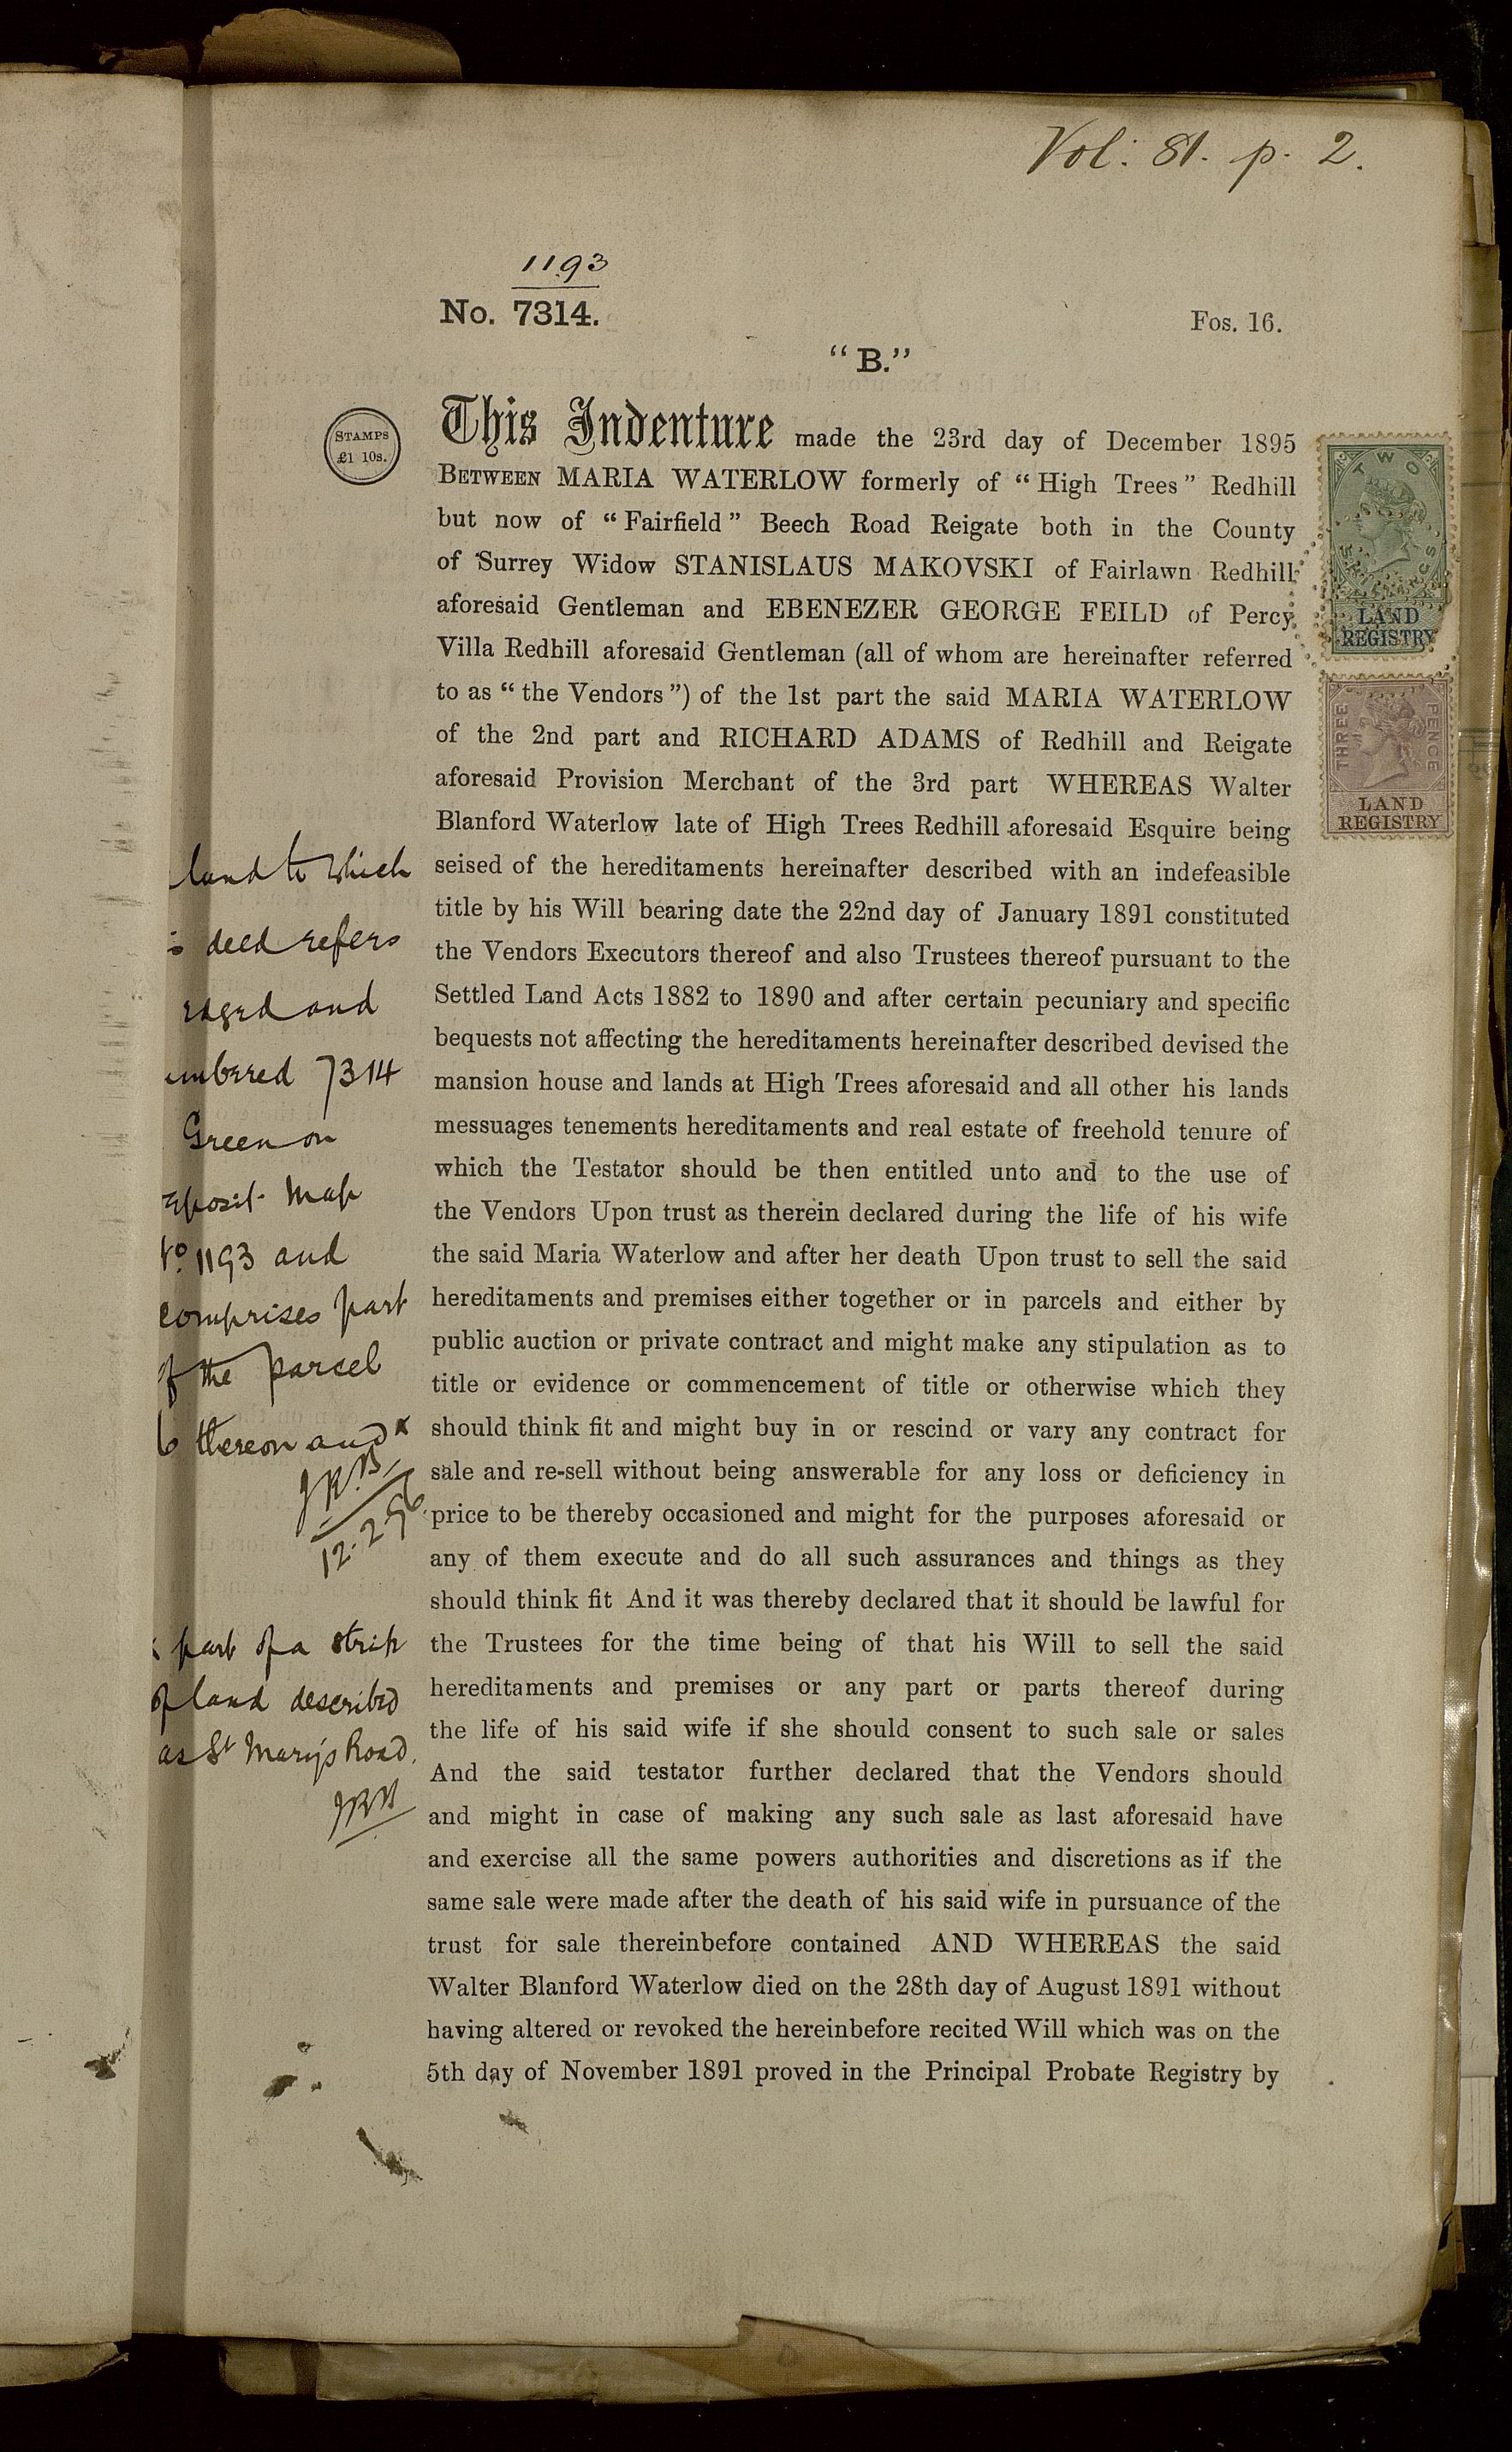 Vol: 81. p. 2.
1193
No. 7314.
Fos. 16.
“B.”
STAMPS
£1 10s.
This Indenture made the 23rd day of December 1895
BETWEEN MARIA WATERLOW formerly of “High Trees” Redhill
but now of “Fairfield” Beech Road Reigate both in the County
of Surrey Widow STANISLAUS MAKOVSKI of Fairlawn Redhill
aforesaid Gentleman and EBENEZER GEORGE FEILD of Percy
Villa Redhill aforesaid Gentleman (all of whom are hereinafter referred
to as “the Vendors”) of the 1st part the said MARIA WATERLOW
of the 2nd part and RICHARD ADAMS of Redhill and Reigate
aforesaid Provision Merchant of the 3rd part WHEREAS Walter
Blanford Waterlow late of High Trees Redhill aforesaid Esquire being
seised of the hereditaments hereinafter described with an indefeasible
title by his Will bearing date the 22nd day of January 1891 constituted
the Vendors Executors thereof and also Trustees thereof pursuant to the
Settled Land Acts 1882 to 1890 and after certain pecuniary and specific
bequests not affecting the hereditaments hereinafter described devised the
mansion house and lands at High Trees aforesaid and all other his lands
messuages tenements hereditaments and real estate of freehold tenure of
which the Testator should be then entitled unto and to the use of
the Vendors Upon trust as therein declared during the life of his wife
the said Maria Waterlow and after her death Upon trust to sell the said
hereditaments and premises either together or in parcels and either by
public auction or private contract and might make any stipulation as to
title or evidence or commencement of title or otherwise which they
should think fit and might buy in or rescind or vary any contract for
sale and re-sell without being answerable for any loss or deficiency in
price to be thereby occasioned and might for the purposes aforesaid or
any of them execute and do all such assurances and things as they
should think fit And it was thereby declared that it should be lawful for
the Trustees for the time being of that his Will to sell the said
hereditaments and premises or any part or parts thereof during
the life of his said wife if she should consent to such sale or sales
And the said testator further declared that the Vendors should
and might in case of making any such sale as last aforesaid have
and exercise all the same powers authorities and discretions as if the
same sale were made after the death of his said wife in pursuance of the
trust for sale thereinbefore contained AND WHEREAS the said
Walter Blanford Waterlow died on the 28th day of August 1891 without
having altered or revoked the hereinbefore recited Will which was on the
5th day of November 1891 proved in the Principal Probate Registry by
land to which
deed refers
edged and
umbered 7314
Green on
eposit Map
No. 1193 and
comprises part
of the parcel
6 thereon and x
12.2.96
x part of a strip
of land described
as St Mary's Road.
TWO
LAND
REGISTRY
THREE PENCE
LAND
REGISTRY